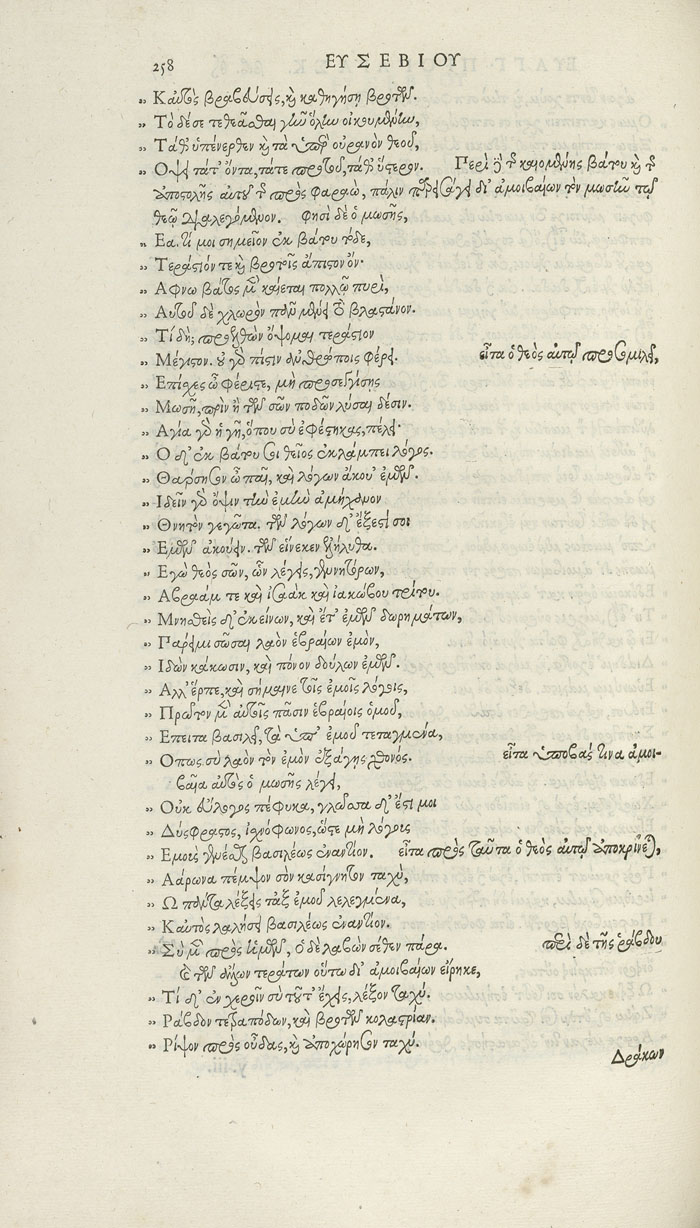 258 ΕΥΣΕΒΙΟΥ
„ Καὐτὸς βραβεύσεις, καὶ καθηγήσῃ βροτῶν.
„ Τὸ δέ σε τεθεᾶσθαι γῆν ὅλην οἰκουμένην,
„ Τά θ' ὑπένερθεν καὶ τὰ ὑπὲρ οὐρανὸν θεοῦ,
„ Ὄψει τά τ' ὄντα, τά τε πρὸ τοῦ, τά θ' ὕστερον. Περὶ δὲ τῆς καιομένης βάτου καὶ τῆς
ἀποστολῆς αὐτοῦ τῆς πρὸς φαραὼ, πάλιν παρεισάγει δι' ἀμοιβαίων τὸν μωσῆν τῷ
θεῷ διαλεγόμενον. φησὶ δὲ ὁ μωσῆς,
„ Εα. τί μοι σημεῖον ἐκ βάτου τόδε,
„ Τεράστιόν τε καὶ βροτοῖς ἄπιστον ὄν·
„ Αφνω βάτος μὲν καίεται πολλῷ πυρὶ,
„ Αυτοῦ δὲ χλωρὸν πᾶν μένει τὸ βλαστάνον.
„ Τί δή; προελθὼν ὄψομαι τεράστιον
„ Μέγιστον. οὐ γὰρ πίστιν ἀνθρώποις φέρει. εἶτα ὁ θεὸς αὐτῷ προσομιλεῖ,
„ Επίσχες ὦ φέριστε, μὴ προσεγγίσῃς
„ Μωσῆ, πρὶν ἢ τῶν σῶν ποδῶν λῦσαι δέσιν.
„ Αγία γὰρ ἡ γῆ, ὅπου σὺ ἐφέστηκας, πέλει·
„ Ο δ' ἐκ βάτου σοι θεῖος ἐκλάμπει λόγος.
„ Θάρσησον ὦ παῖ, καὶ λόγων ἄκου' ἐμῶν.
„ Ιδεῖν γὰρ ὄψιν τὴν ἐμὴν ἀμήχανον
„ Θνητὸν γεγῶτα. τῶν λόγων δ' ἔξεστί σοι
„ Εμῶν ἀκούειν. τῶν εἵνεκεν ἐλήλυθα.
„ Εγὼ θεὸς σῶν, ὧν λέγεις, γεννητόρων,
„ Αβραάμ τε καὶ ἰσαὰκ καὶ ἰακώβου τρίτου.
„ Μνησθεὶς δ' ἐκείνων, καὶ ἔτ' ἐμῶν δωρημάτων,
„ Πάρειμι σῶσαι λαὸν ἑβραίων ἐμὸν,
„ Ιδὼν κάκωσιν, καὶ πόνον δούλων ἐμῶν.
„ Αλλ' ἕρπε, καὶ σήμαινε τοῖς ἐμοῖς λόγοις,
„ Πρῶτον μὲν αὐτοῖς πᾶσιν ἑβραίοις ὁμοῦ,
„ Επειτα βασιλεῖ, τὰ ὑπ' ἐμοῦ τεταγμένα,
„ Οπως σὺ λαὸν τὸν ἐμὸν ἐξάγῃς χθονός. εἶτα ὑποβάς τινα ἀμοι-
βαῖα αὐτὸς ὁ μωσῆς λέγει,
„ Οὐκ εὔλογος πέφυκα, γλῶσσα δ' ἔστι μοι
„ Δύσφραστος, ἰσχνόφωνος, ὥστε μὴ λόγοις
„ Εμοὺς γενέσθαι βασιλέως ἐναντίον. εἶτα πρὸς ταῦτα ὁ θεὸς αὐτῷ ἀποκρίνεται,
„ Αάρωνα πέμψον σὸν κασίγνητον ταχὺ,
„ Ω πάντα λέξεις τἀξ ἐμοῦ λελεγμένα,
„ Καὐτὸς λαλήσει βασιλέως ἐναντίον.
„ Σὺ μὲν πρὸς ἡμῶν, ὁ δὲ λαβὼν σέθεν πάρα. περὶ δὲ τῆς ῥάβδου
καὶ τῶν ἄλλων τεράτων οὕτω δι' ἀμοιβαίων εἴρηκε,
„ Τί δ' ἐν χεροῖν σὺ τοῦτ' ἔχεις, λέξον ταχύ.
„ Ράβδον τετραπόδων, καὶ βροτῶν κολαστρίαν.
„ Ρίψον πρὸς οὖδας, καὶ ἀποχώρησον ταχύ.
Δράκων